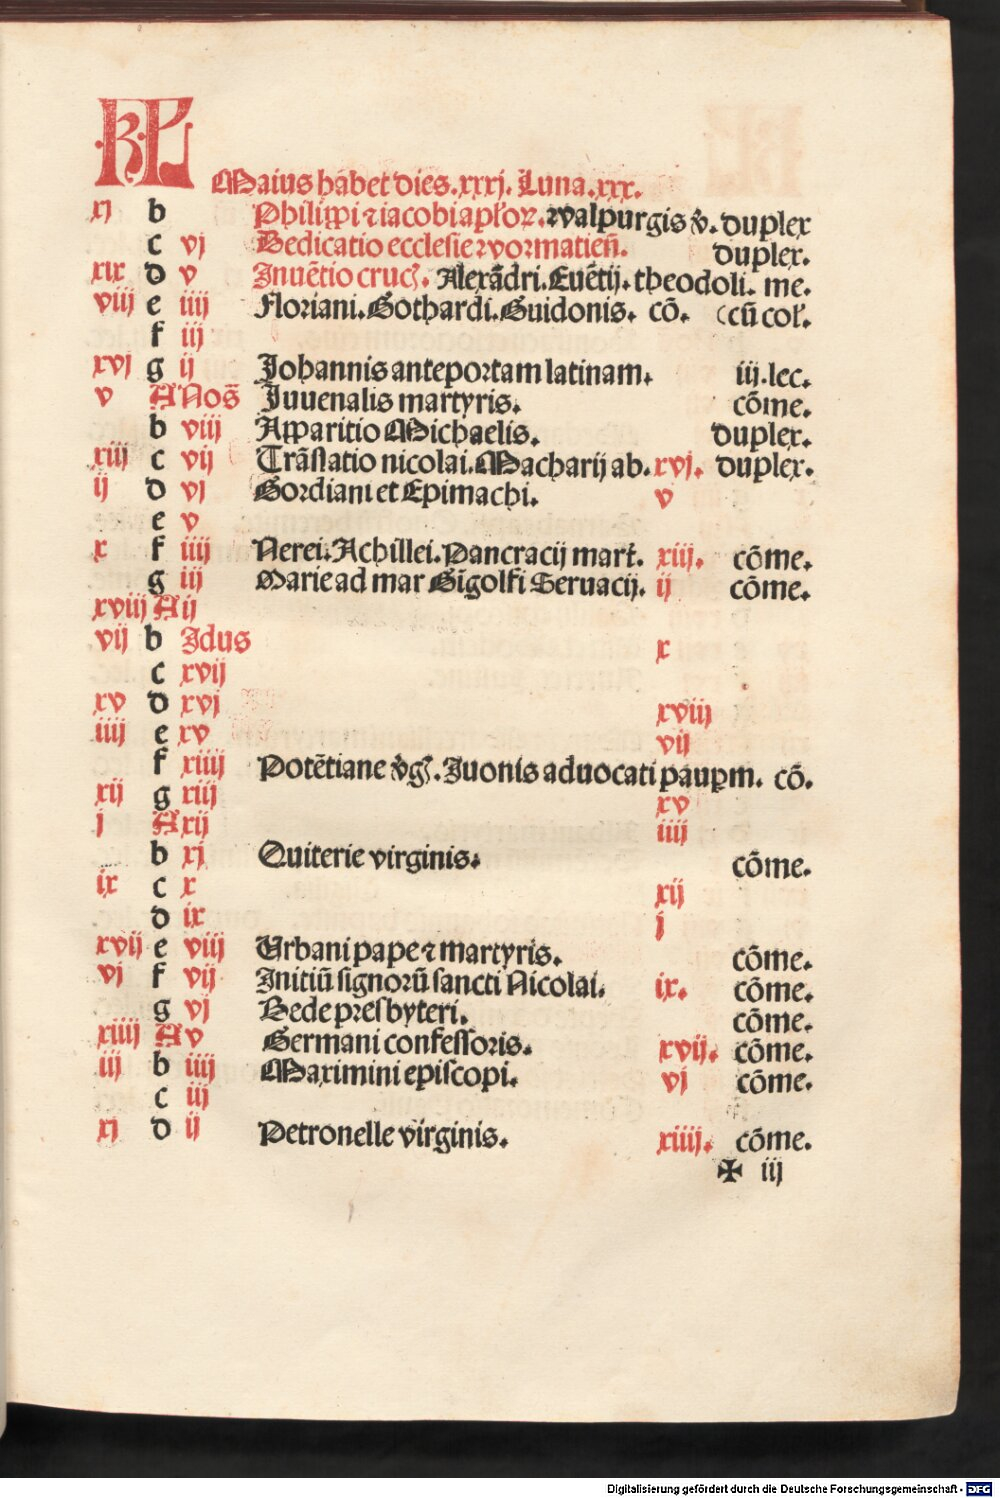 KL
Maius habet dies.xxxj. Luna.xxx.
xj b Philippi ⁊ iacobi apłoꝝ. walpurgis v̄. duplex
c vj Dedicatio ecclesie wormatieñ. duplex.
xix d v Inuētio cruc̄. Alexādri. Euētij. theodoli. me.
viij e iiij Floriani. Gothardi. Guidonis. cō. (cū coł.
f iij
xvj g ij Johannis anteportam latinam. iij.lec.
v A Nos̄ Juuenalis martyris. cōme.
b viij Apparitio Michaelis. duplex.
xiij c vij Trāslatio nicolai. Macharij ab. xvj. duplex.
ij d vj Gordiani et Epimachi. v
e v
x f iiij Nerei. Achillei. Pancracij mart̄. xiij. cōme.
g iij Marie ad mar Gīgolfi Seruacij. ij cōme.
xviij A ij
vij b Idus x
c xvij
xv d xvj xviij
iiij e xv vij
f xiiij Potētiane v̄ḡ. Iuonis aduocati pauꝑm. cō.
xij g xiij xv
j A xij iiij
b xj Quiterie virginis. cōme.
ix c x xij
d ix j
xvij e viij Urbani pape ⁊ martyris. cōme.
vj f vij Initiū signorū sancti Nicolai. ix. cōme.
g vj Bede presbyteri. cōme.
xiiij A v Germani confessoris. xvij. cōme.
iij b iiij Maximini episcopi. vj cōme.
c iij
xj d ij Petronelle virginis. xiiij. cōme.
✠ iij
Digitalisierung gefördert durch die Deutsche Forschungsgemeinschaft - DFG